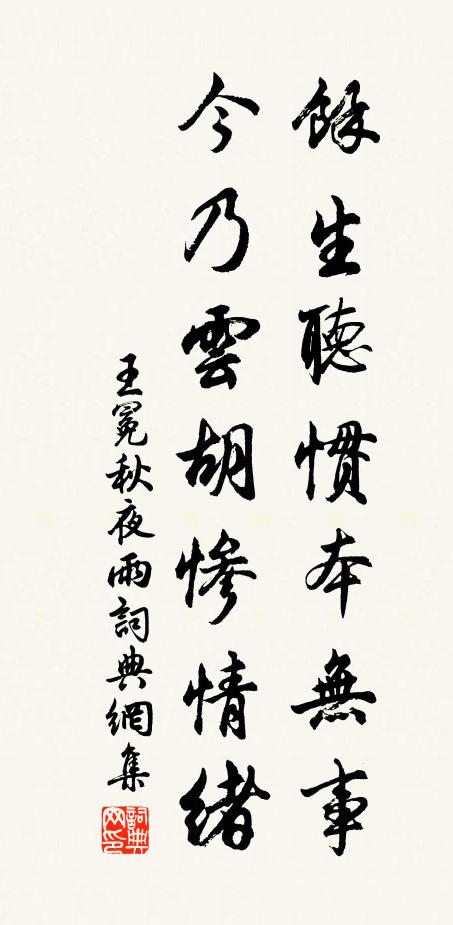 餘生聽慣本無事
今乃雲胡慘情緒
王冕秋夜雨詞典網集
詞典網印